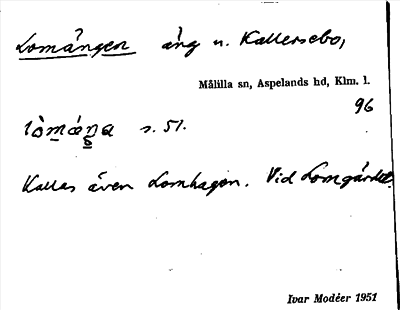 Lomången äng u. Kallersebo,
Målilla sn, Aspelands hd, Klm. l.
96
s. 51.
Kallas även Lomhagen. Vid Lomgärdet.
Ivar Modéer 1951